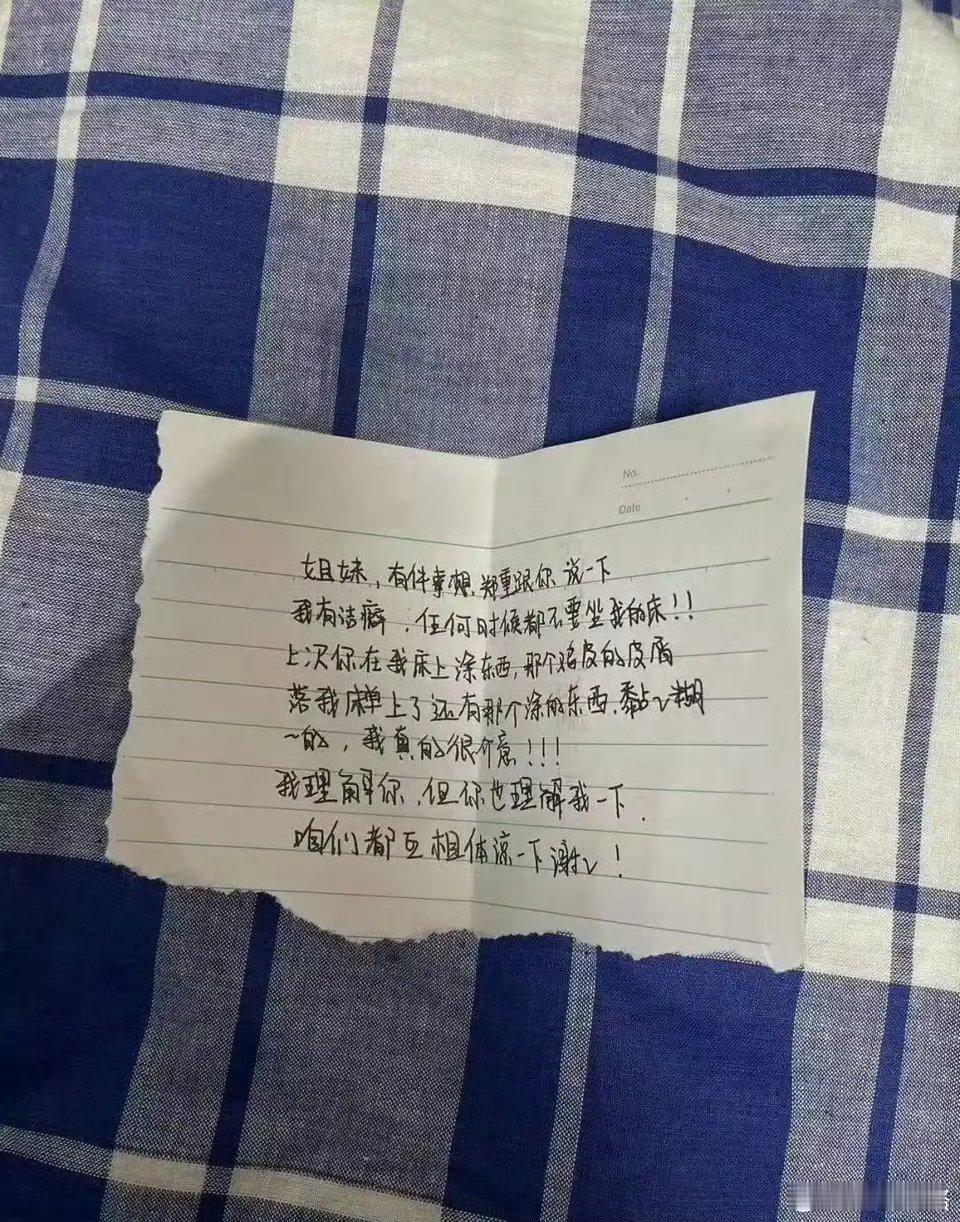 No.
Date
姐妹，有件事想郑重跟你说一下
我有洁癖．任何时候都不要坐我的床！！
上次你在我床上涂东西，那个鸡皮的皮屑
落我床单上了还有那个涂的东西．黏~糊
~的，我真的很介意！！！
我理解你，但你也理解我一下．
咱们都互相体谅一下谢~！